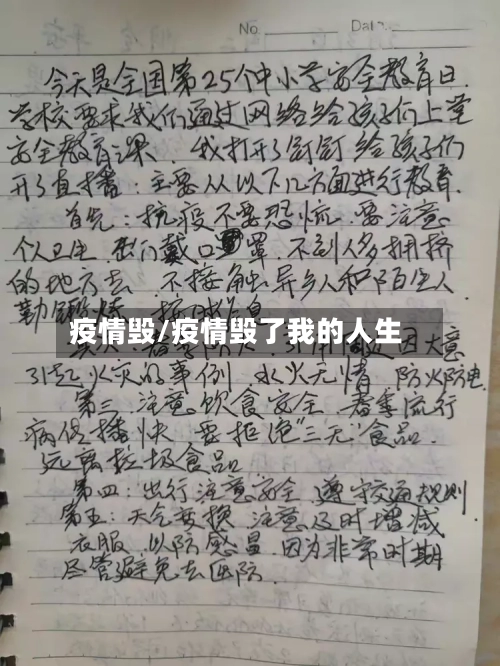 No
Date
今天是全国第25个中小学安全教育日.
学校要求我们通过网络给孩子们上堂
安全教育课.我打开了钉钉给孩子们
开了直播:主要从以下几方面进行教育.
首先:抗疫不要恐慌.要注意
个人卫生.出门戴口罩.不到人多拥挤
的地方去 不接触异乡人和陌生人
勤锻炼.按时作息
疫情毁/疫情毁了我的人生
因大意
引起火灾的事例 水火无情 防火防电
第三:注意饮食安全 春季流行
病传播快 要拒绝"三无"食品.
远离垃圾食品
第四:出行注意安全 遵守交通规则
第五:天气变换 注意及时增减
衣服.以防感冒.因为非常时期
尽管避免去医院.